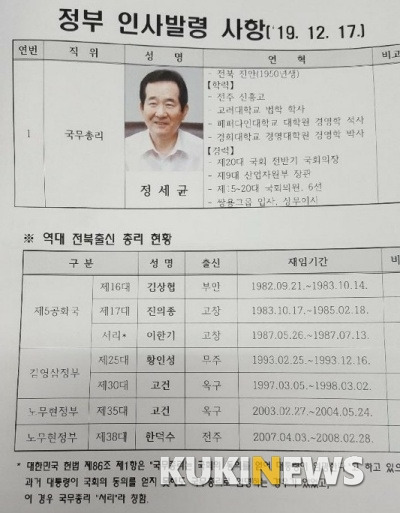 정부 인사발령 사항('19. 12. 17.)
연번 직 위 성 명 연 혁 비고
1 국무총리 정 세 균
- 전북 진안(1950년생)
【학력】
- 전주 신흥고
고려대학교 법학 학사
- 페퍼다인대학교 대학원 경영학 석사
- 경희대학교 경영대학원 경영학 박사
【경력】
- 제20대 국회 전반기 국회의장
- 제9대 산업자원부 장관
- 제15~20대 국회의원, 6선
- 쌍용그룹 입사, 상무이사
※ 역대 전북출신 총리 현황
구 분 성 명 출신 재임기간 비
제5공화국 제16대 김상협 부안 1982.09.21.~1983.10.14.
제17대 진의종 고창 1983.10.17.~1985.02.18.
서리* 이한기 고창 1987.05.26.~1987.07.13.
김영삼정부 제25대 황인성 무주 1993.02.25.~1993.12.16.
제30대 고건 옥구 1997.03.05.~1998.03.02.
노무현정부 제35대 고건 옥구 2003.02.27.~2004.05.24.
노무현정부 제38대 한덕수 전주 2007.04.03.~2008.02.28.
* 대한민국 헌법 제86조 제1항은 "국무총리는 국회의 하고 있으
과거 대통령이 국회의 동의를 얻지
이 경우 국무총리 '서리'라 칭함.
KUKINEWS